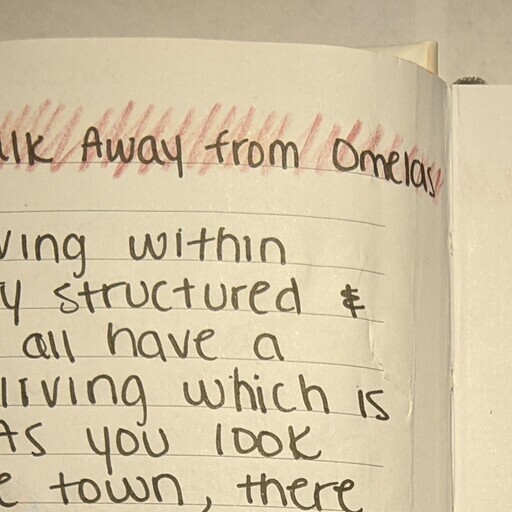 alk Away from Omelas
ving within
y structured &
all have a
living which is
As you look
e town, there